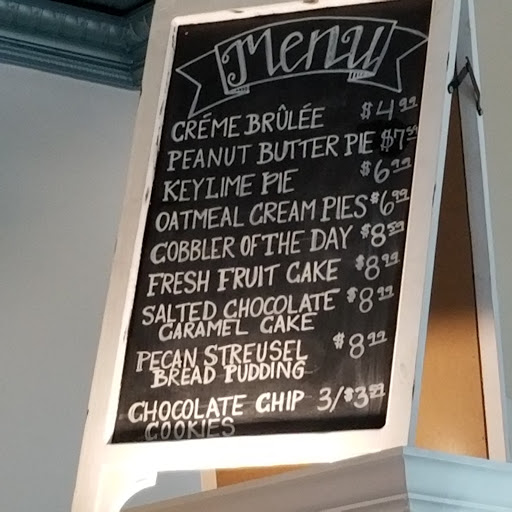 Menu
CRÉME BRÛLÉE $4.99
PEANUT BUTTER PIE $7.50
KEYLIME PIE $6.99
OATMEAL CREAM PIES $6.99
COBBLER OF THE DAY $8.50
FRESH FRUIT CAKE $8.99
SALTED CHOCOLATE $8.99
CARAMEL CAKE
PECAN STREUSEL $8.99
BREAD PUDDING
CHOCOLATE CHIP 3/$3.50
COOKIES